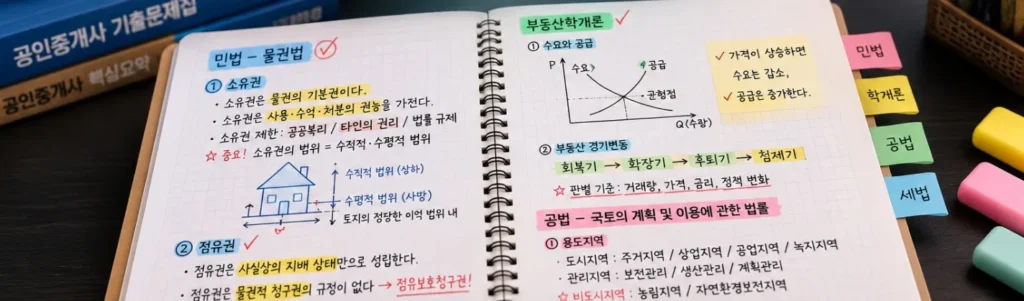 공인중개사 기출문제집
공인중개사 핵심요약
민법 – 물권법
① 소유권
· 소유권은 물권의 기본권이다.
· 소유권은 사용·수익·처분의 권능을 가전다.
· 소유권 제한 : 공공복리 / 타인의 권리 / 법률 규제
☆ 중요! 소유권의 범위 = 수직적·수평적 범위
수직적 범위 (상하)
수평적 범위 (사방)
토지의 정당한 이익 범위 내
② 점유권
· 점유권은 사실상의 지배 상태만으로 성립한다.
· 점유권은 물권적 청구권의 규정이 없다 → 점유보호청구권!
부동산학개론
① 수요와 공급
P
수요
공급
균형점
Q(수량)
가격이 상승하면
수요는 감소,
공급은 증가한다.
② 부동산 경기변동
회복기 → 확장기 → 후퇴기 → 침체기
☆ 판별 기준 : 거래량, 가격, 금리, 정책 변화
공법 – 국토의 계획 및 이용에 관한 법률
① 용도지역
· 도시지역 : 주거지역 / 상업지역 / 공업지역 / 녹지지역
· 관리지역 : 보전관리 / 생산관리 / 계획관리
☆ 비도시지역 : 농림지역 / 자연환경보전지역
민법
학개론
공법
세법